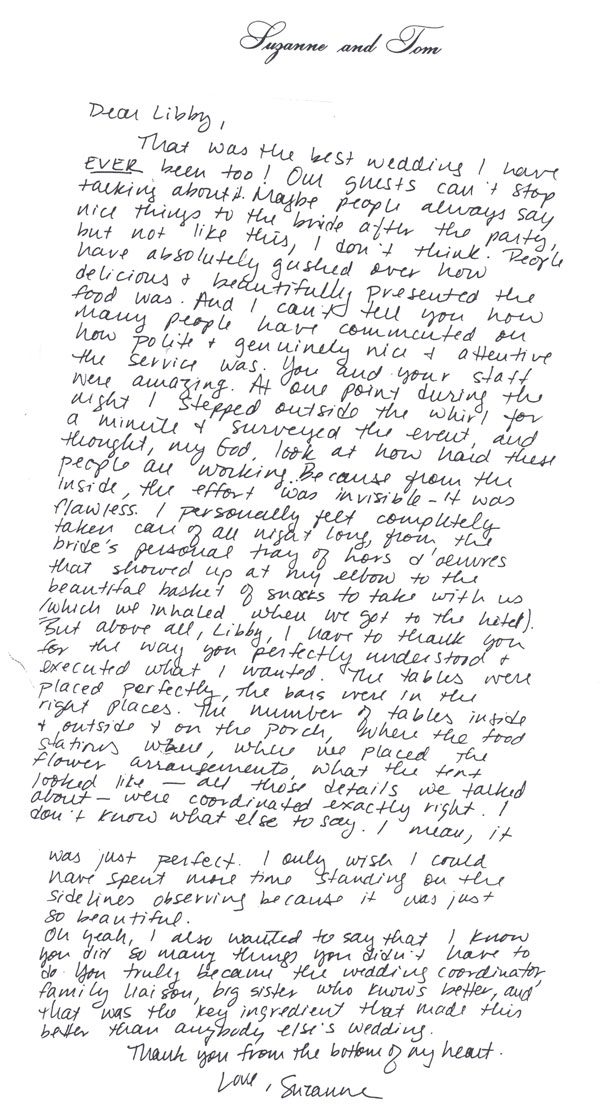 Suzanne and Tom
Dear Libby,
That was the best wedding I have
EVER been too! Our guests can't stop
talking about it. Maybe people always say
nice things to the bride after the party,
but not like this, I don't think. People
have absolutely gushed over how
delicious & beautifully presented the
food was. And I can't tell you how
many people have commented on
how polite & genuinely nice & attentive
the service was. You and your staff
were amazing. At one point during the
night I stepped outside the whirl for
a minute & surveyed the event, and
thought, my God, look at how hard these
people are working. Because from the
inside, the effort was invisible - it was
flawless. I personally felt completely
taken care of all night long, from the
bride's personal tray of hors d'oeuvres
that showed up at my elbow to the
beautiful basket of snacks to take with us
(which we inhaled when we got to the hotel).
But above all, Libby, I have to thank you
for the way you perfectly understood &
executed what I wanted. The tables were
placed perfectly, the bars were in the
right places. The number of tables inside
& outside & on the porch, where the food
stations were, where we placed the
flower arrangements, what the tent
looked like — all those details we talked
about — were coordinated exactly right. I
don't know what else to say. I mean, it
was just perfect. I only wish I could
have spent more time standing on the
sidelines observing because it was just
so beautiful.
Oh yeah, I also wanted to say that I know
you did so many things you didn't have to
do. You truly became the wedding coordinator,
family liaison, big sister who knows better, and
that was the key ingredient that made this
better than anybody else's wedding.
Thank you from the bottom of my heart.
Love, Suzanne